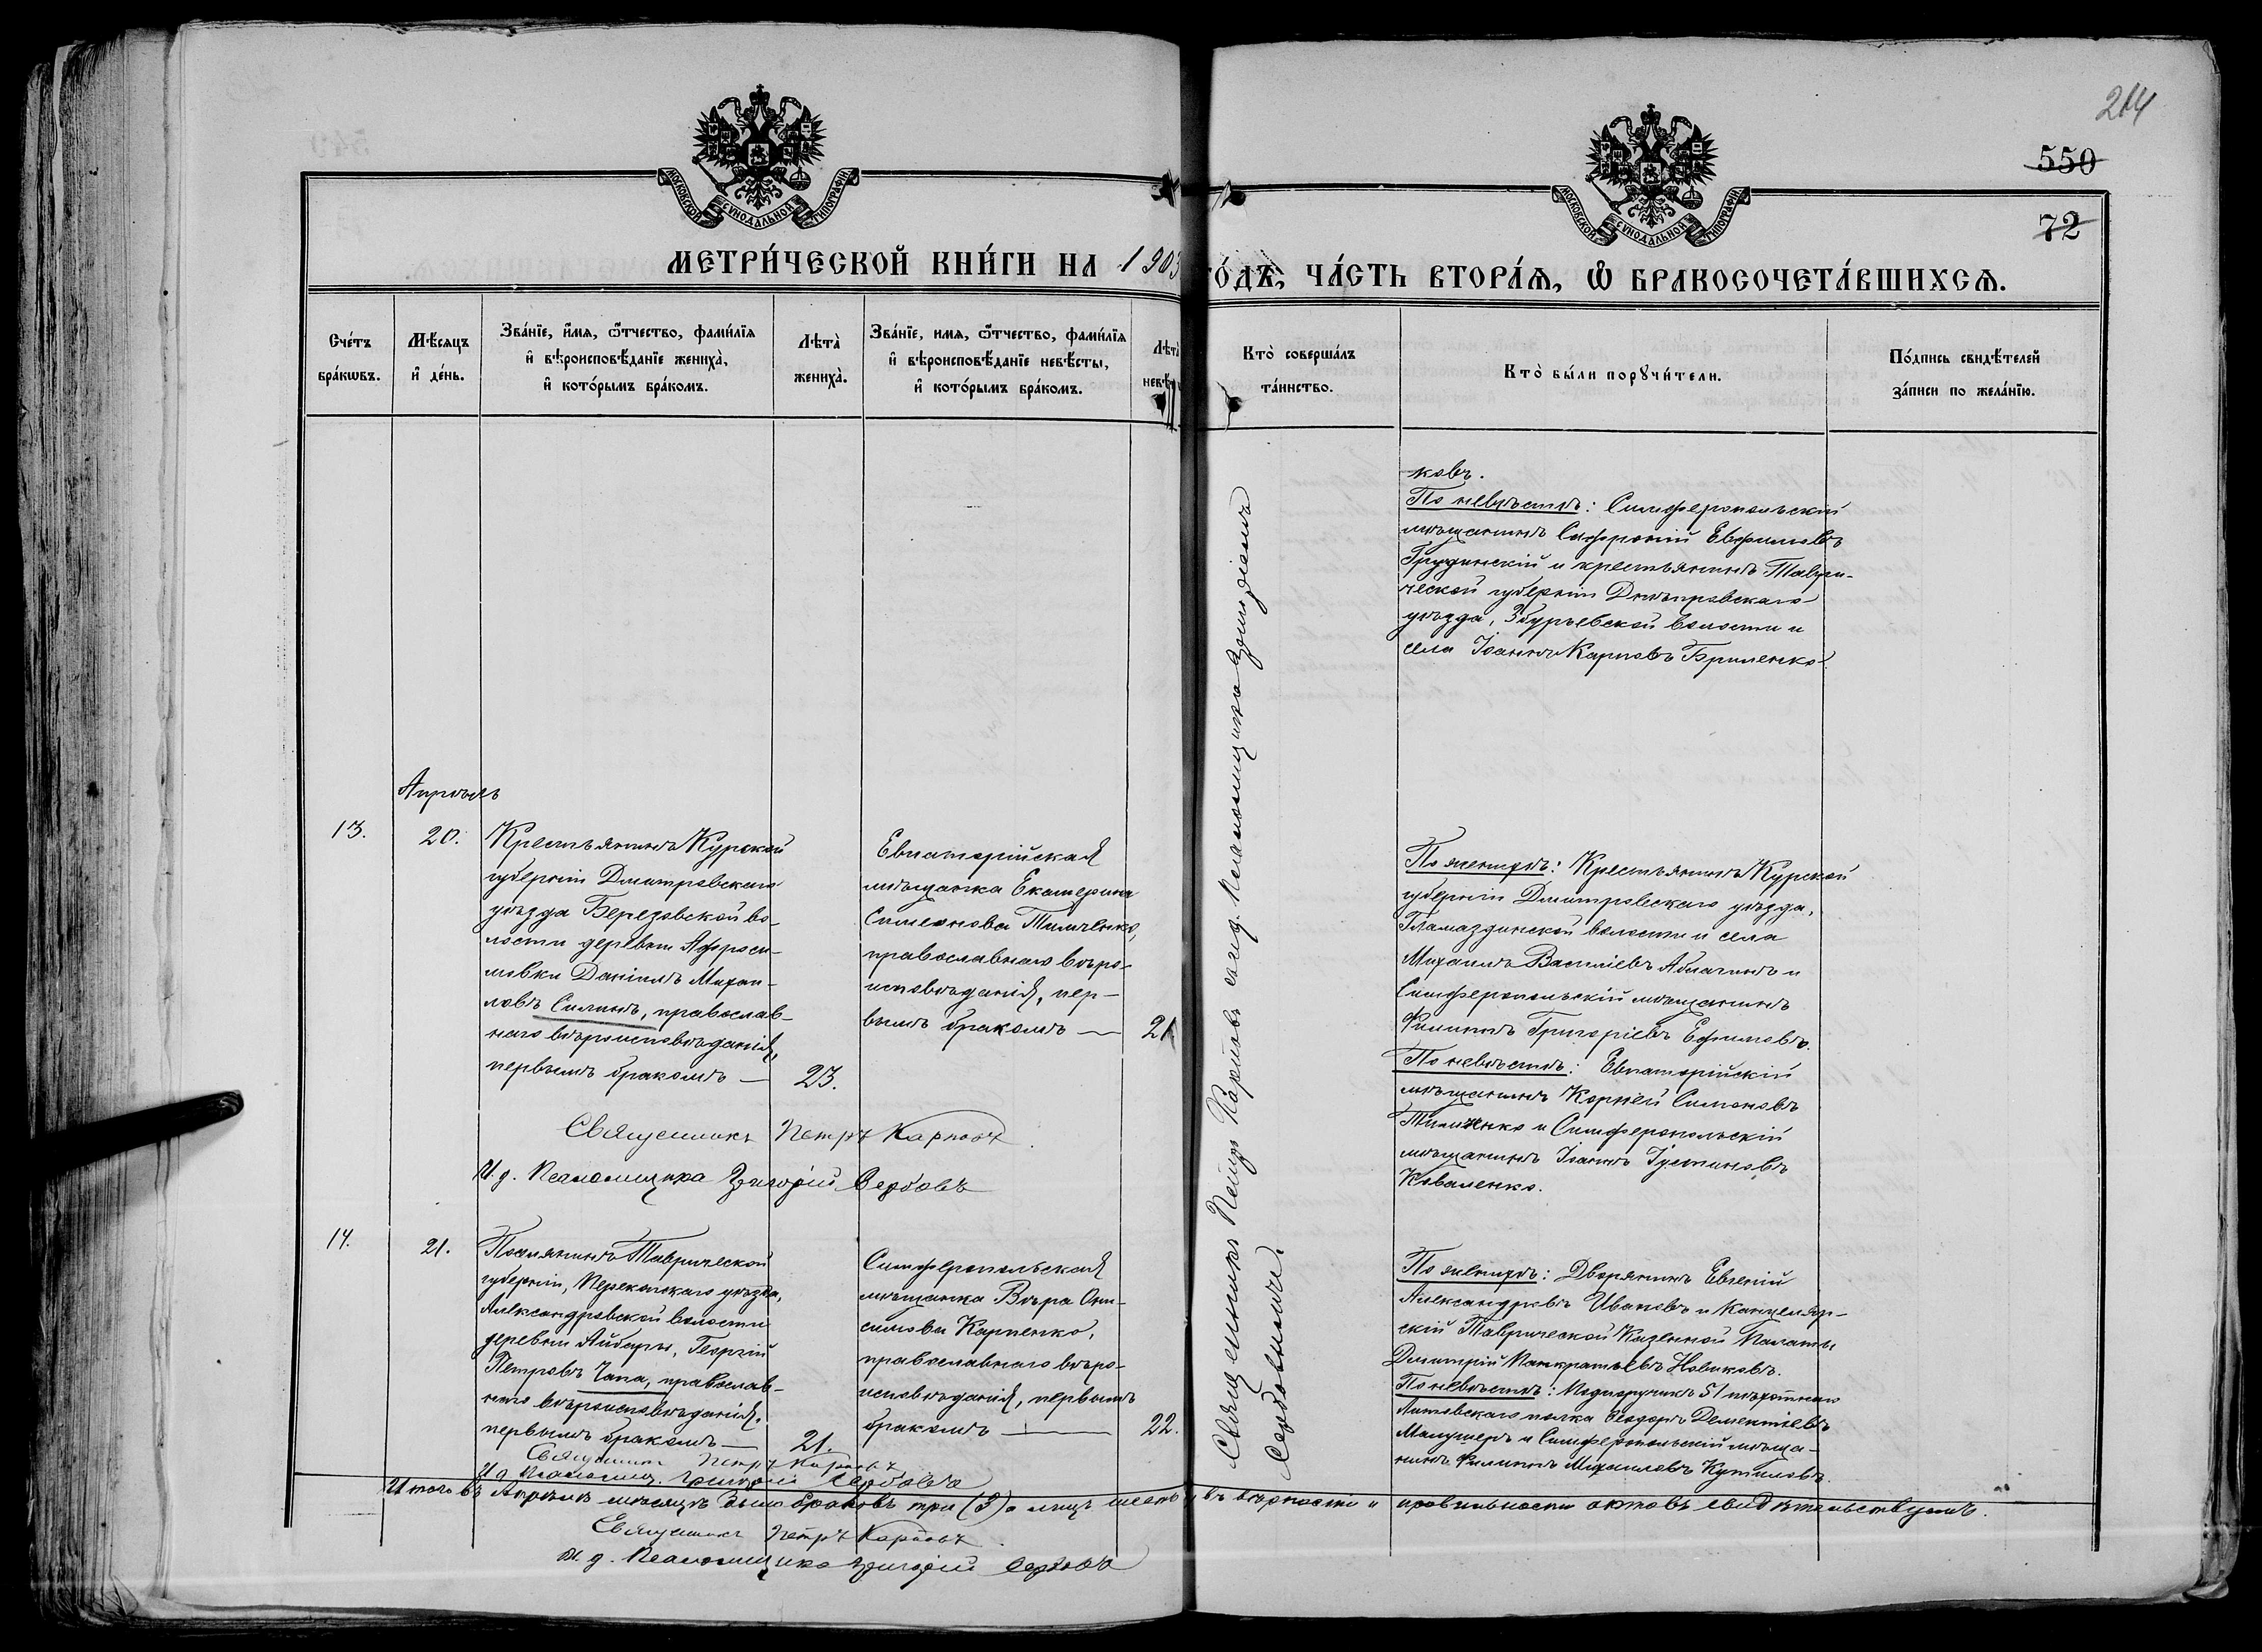 214
550
72
МОСКОВСКОЙ СѴНОДАЛЬНОЙ ТИПОГРАФІИ
МОСКОВСКОЙ СѴНОДАЛЬНОЙ ТИПОГРАФІИ
МЕТРИ́ЧЕСКОЙ КНИ́ГИ НА 1903
ГО́ДЪ, ЧА́СТЬ ВТОРА́Ѧ, Ѽ БРАКОСОЧЕТА́ВШИХСѦ.
Сче́тъ
бра́кѡвъ.
Мѣ́сѧцъ
и҆ де́нь.
Зва́нїе, и҆́мѧ, ѻ҆́тчество, фами́лїѧ
и҆ вѣроисповѣ́данїе жениха̀,
и҆ кото́рымъ бра́комъ.
Лѣта̀
жениха̀.
Зва́нїе, имѧ, ѻ҆́тчество, фами́лїѧ
и҆ вѣроисповѣ́данїе невѣ́сты,
и҆ кото́рымъ бра́комъ.
Лѣта̀
невѣ
Кто̀ совершáлъ
та́инство.
Кто̀ бы́ли порꙋчи́тели.
По́дпись свидѣ́телей
за́писи по жела́нїю.
ковъ.
По невѣстѣ: Симферопольскій
мѣщанинъ Софроній Евфимовъ
Грудинскій и крестьянинъ Таври-
ческой губерніи Днѣпровскаго
уѣзда, Збурьевской волости и
села Іоаннъ Карповъ Бриленко
Апрѣль
13.
20.
Крестьянинъ Курской
губерніи Дмитровскаго
уѣзда Березовской во-
лости деревни Афроси-
мовки Даніилъ Михаи-
ловъ Силинъ, православ-
наго вѣроисповѣданія,
первымъ бракомъ —
23.
Евпаторійская
мѣщанка Екатерина
Симеонова Тимченко,
православнаго вѣро-
исповѣданія, пер-
вымъ бракомъ —
21
По женихѣ: Крестьянинъ Курской
губерніи Дмитровскаго уѣзда,
Гламаздинской волости и села
Михаилъ Василіевъ Аблачинъ и
Симферопольскій мѣщанинъ
Филиппъ Григоріевъ Ефимовъ.
По невѣстѣ: Евпаторійскій
мѣщанинъ Корней Симоновъ
Тимченко и Симферопольскій
мѣщанинъ Іоаннъ Іустиновъ
Коваленко.
Священникъ Петръ Карповъ.
И. д. Псаломщика Григорій Сербовъ
14.
21.
Поселянинъ Таврической
губерніи, Перекопскаго уѣзда,
Александровской волости
деревни Айбары, Георгій
Петровъ Чапа, православ-
наго вѣроисповѣданія,
первымъ бракомъ —
21.
Симферопольская
мѣщанка Вѣра Они-
симова Карпенко,
православнаго вѣро-
исповѣданія, первымъ
бракомъ —
22.
По женихѣ: Дворянинъ Евгеній
Александровъ Ивановъ и Канцеляр-
скій Таврической Казенной Палаты
Дмитрій Панкратьевъ Новиковъ.
По невѣстѣ: Подпоручикъ 51 пѣхотнаго
Литовскаго полка Ѳеодоръ Дементіевъ
и Симферопольскій мѣща-
нинъ Филиппъ Михаиловъ Кутиловъ.
Священникъ Петръ Карповъ
И. д. Псаломщ. Григорій Сербовъ
Священникъ Петръ Карповъ съ и. д. псаломщика Григоріемъ
Сербовымъ.
Итого въ Апрѣлѣ мѣсяцѣ было браковъ три (3) а лицъ шесть, въ вѣрности и правильности актовъ свидѣтельствуемъ.
Священникъ Петръ Карповъ.
И. д. Псаломщика Григорій Сербовъ